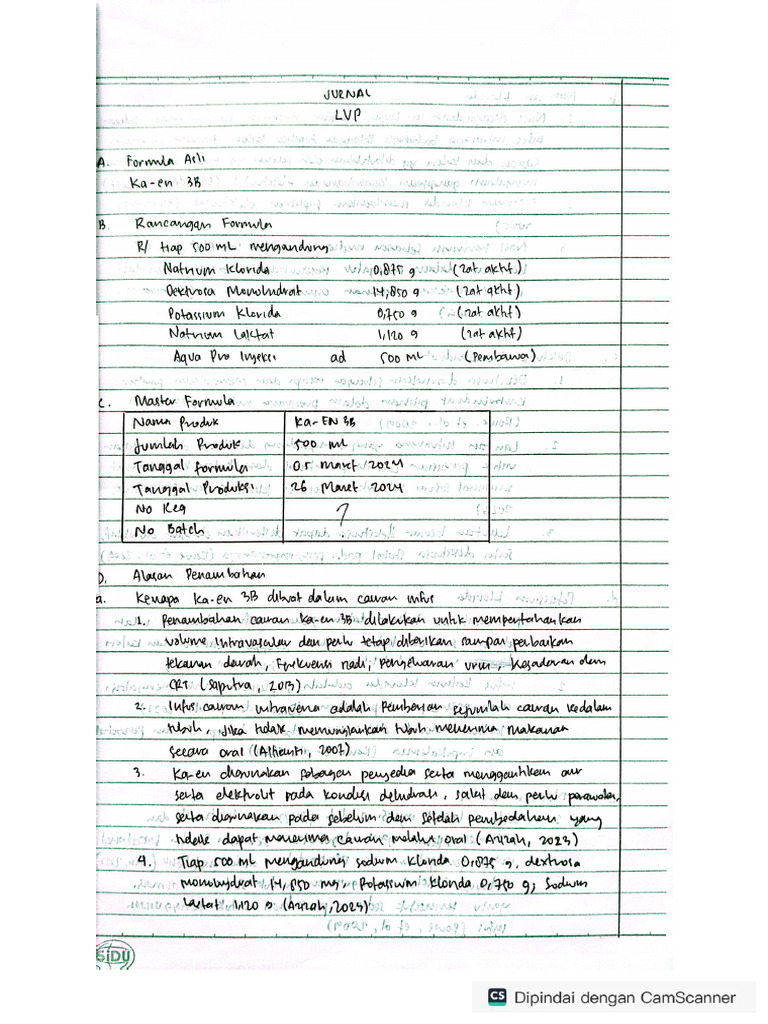 JURNAL
LVP
A. Formula Asli
Ka-en 3B
B. Rancangan Formula
R/ tiap 500 mL mengandung
Natrium Klorida 0,875 g (zat aktif)
Dekstrosa Monohidrat 14,850 g (zat aktif)
Potassium Klorida 0,750 g (zat aktif)
Natrium Laktat 1,120 g (zat aktif)
Aqua Pro Injeksi ad 500 mL (Pembawa)
C. Master Formula
Nama Produk Ka-EN 3B
Jumlah Produk 500 ml
Tanggal formula 05 Maret 2024
Tanggal Produksi 26 Maret 2024
No Reg
No Batch
D. Alasan Penambahan
a. Kenapa Ka-en 3B dibuat dalam cairan infus
1. Penambahan cairan Ka-en 3B dilakukan untuk mempertahankan
volume intravaskular dan perlu tetap diberikan sampai perbaikan
tekanan darah, Frekuensi nadi, Pengeluaran urin, kesadaran dan
CRT (Saputra, 2013)
2. Infus cairan intravena adalah Pemberian sejumlah cairan kedalam
tubuh, Jika tidak memungkinkan tubuh menerima makanan
secara oral (Alfianti, 2007)
3. Ka-en digunakan sebagai penyedia serta menggantikan air
serta elektrolit pada kondisi dehidrasi, sakit dan perlu perawatan,
serta digunakan pada sebelum dan setelah pembedahan yang
tidak dapat menerima cairan melalui oral (Azizah, 2023)
4. Tiap 500 mL mengandung sodium Klorida 0,875 g, dextrosa
monohydrat 14,850 mg, Potassium Klorida 0,750 g, Sodium
Laktat 1,120 g (Azizah, 2023)
SiDU
CS Dipindai dengan CamScanner